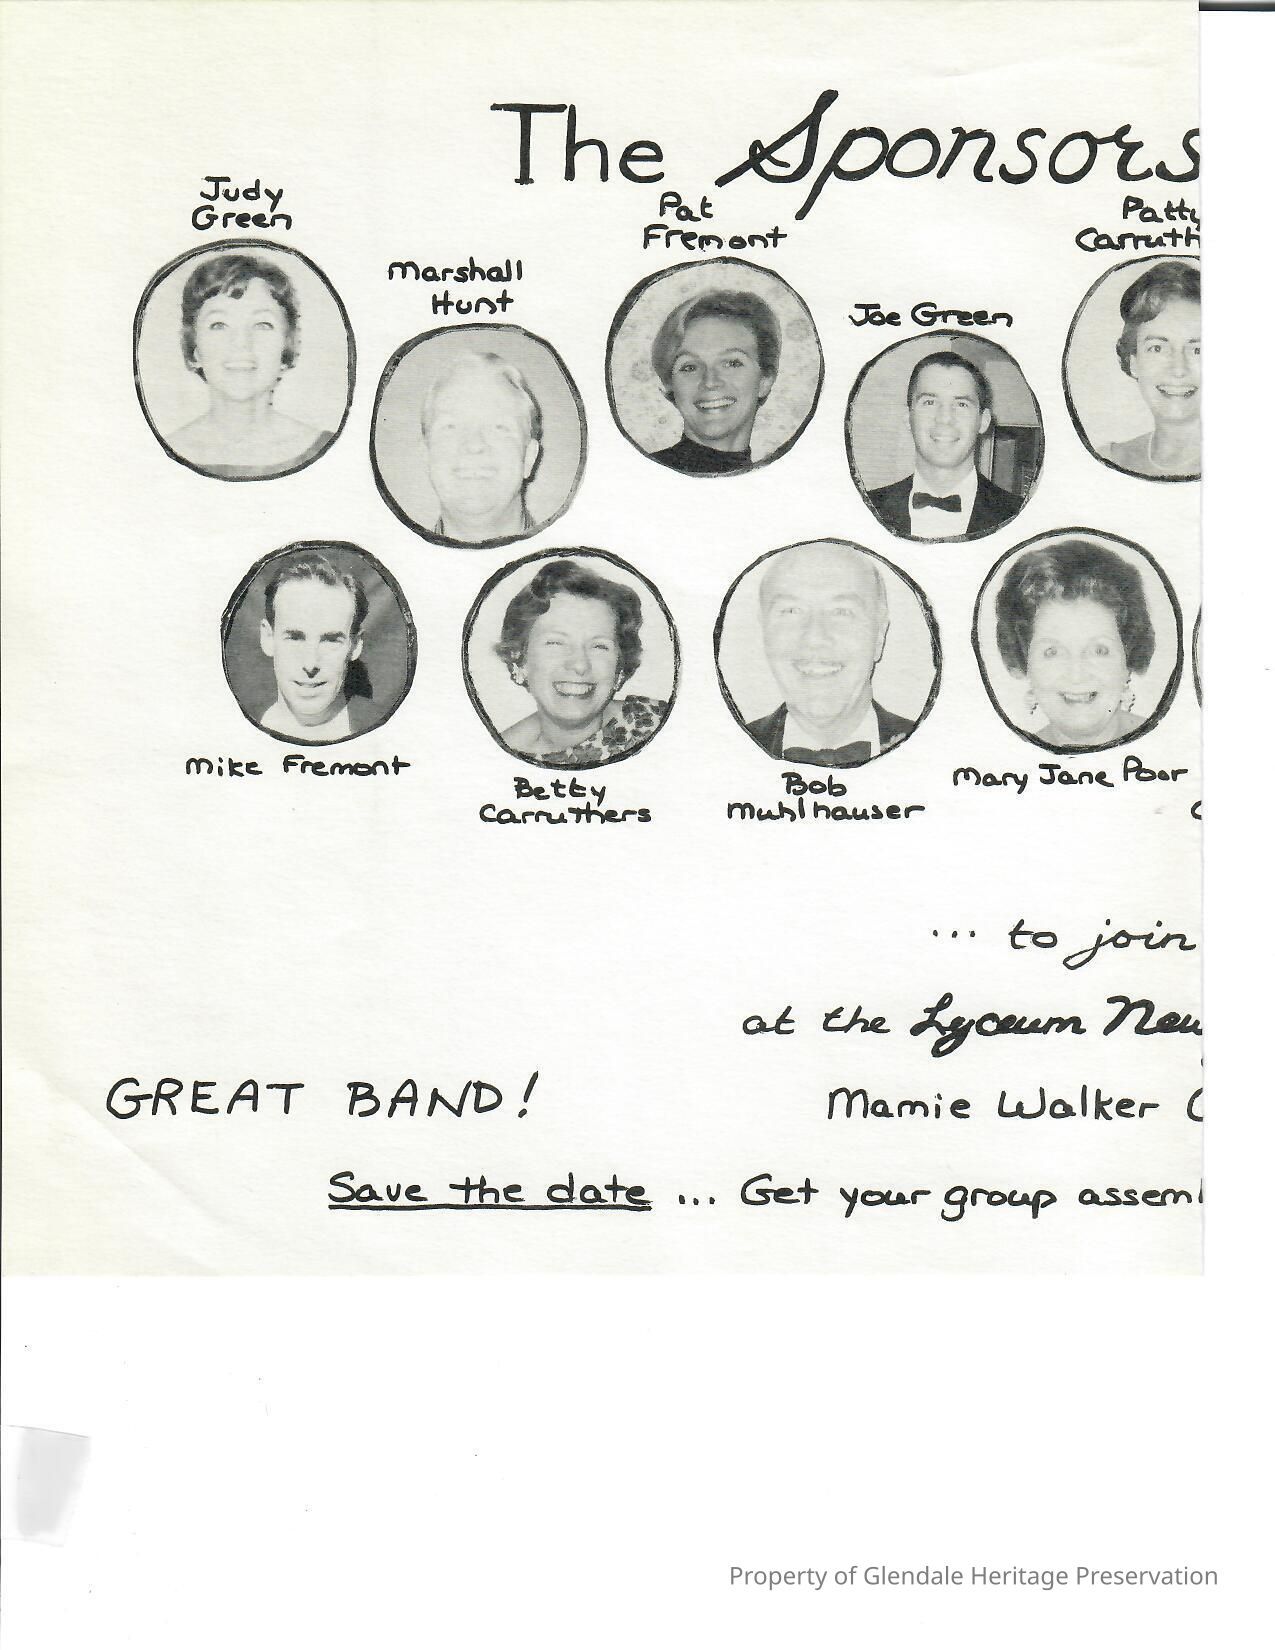 The Sponsors
Judy
Green
Marshall
Hunt
Pat
Fremont
Joe Green
Patty
Carruth
Mike Fremont
Betty
Carruthers
Bob
Muhlhauser
Mary Jane Poor
... to join
at the Lyceum New
GREAT BAND!
Mamie Walker
Save the date ... Get your group assem
Property of Glendale Heritage Preservation